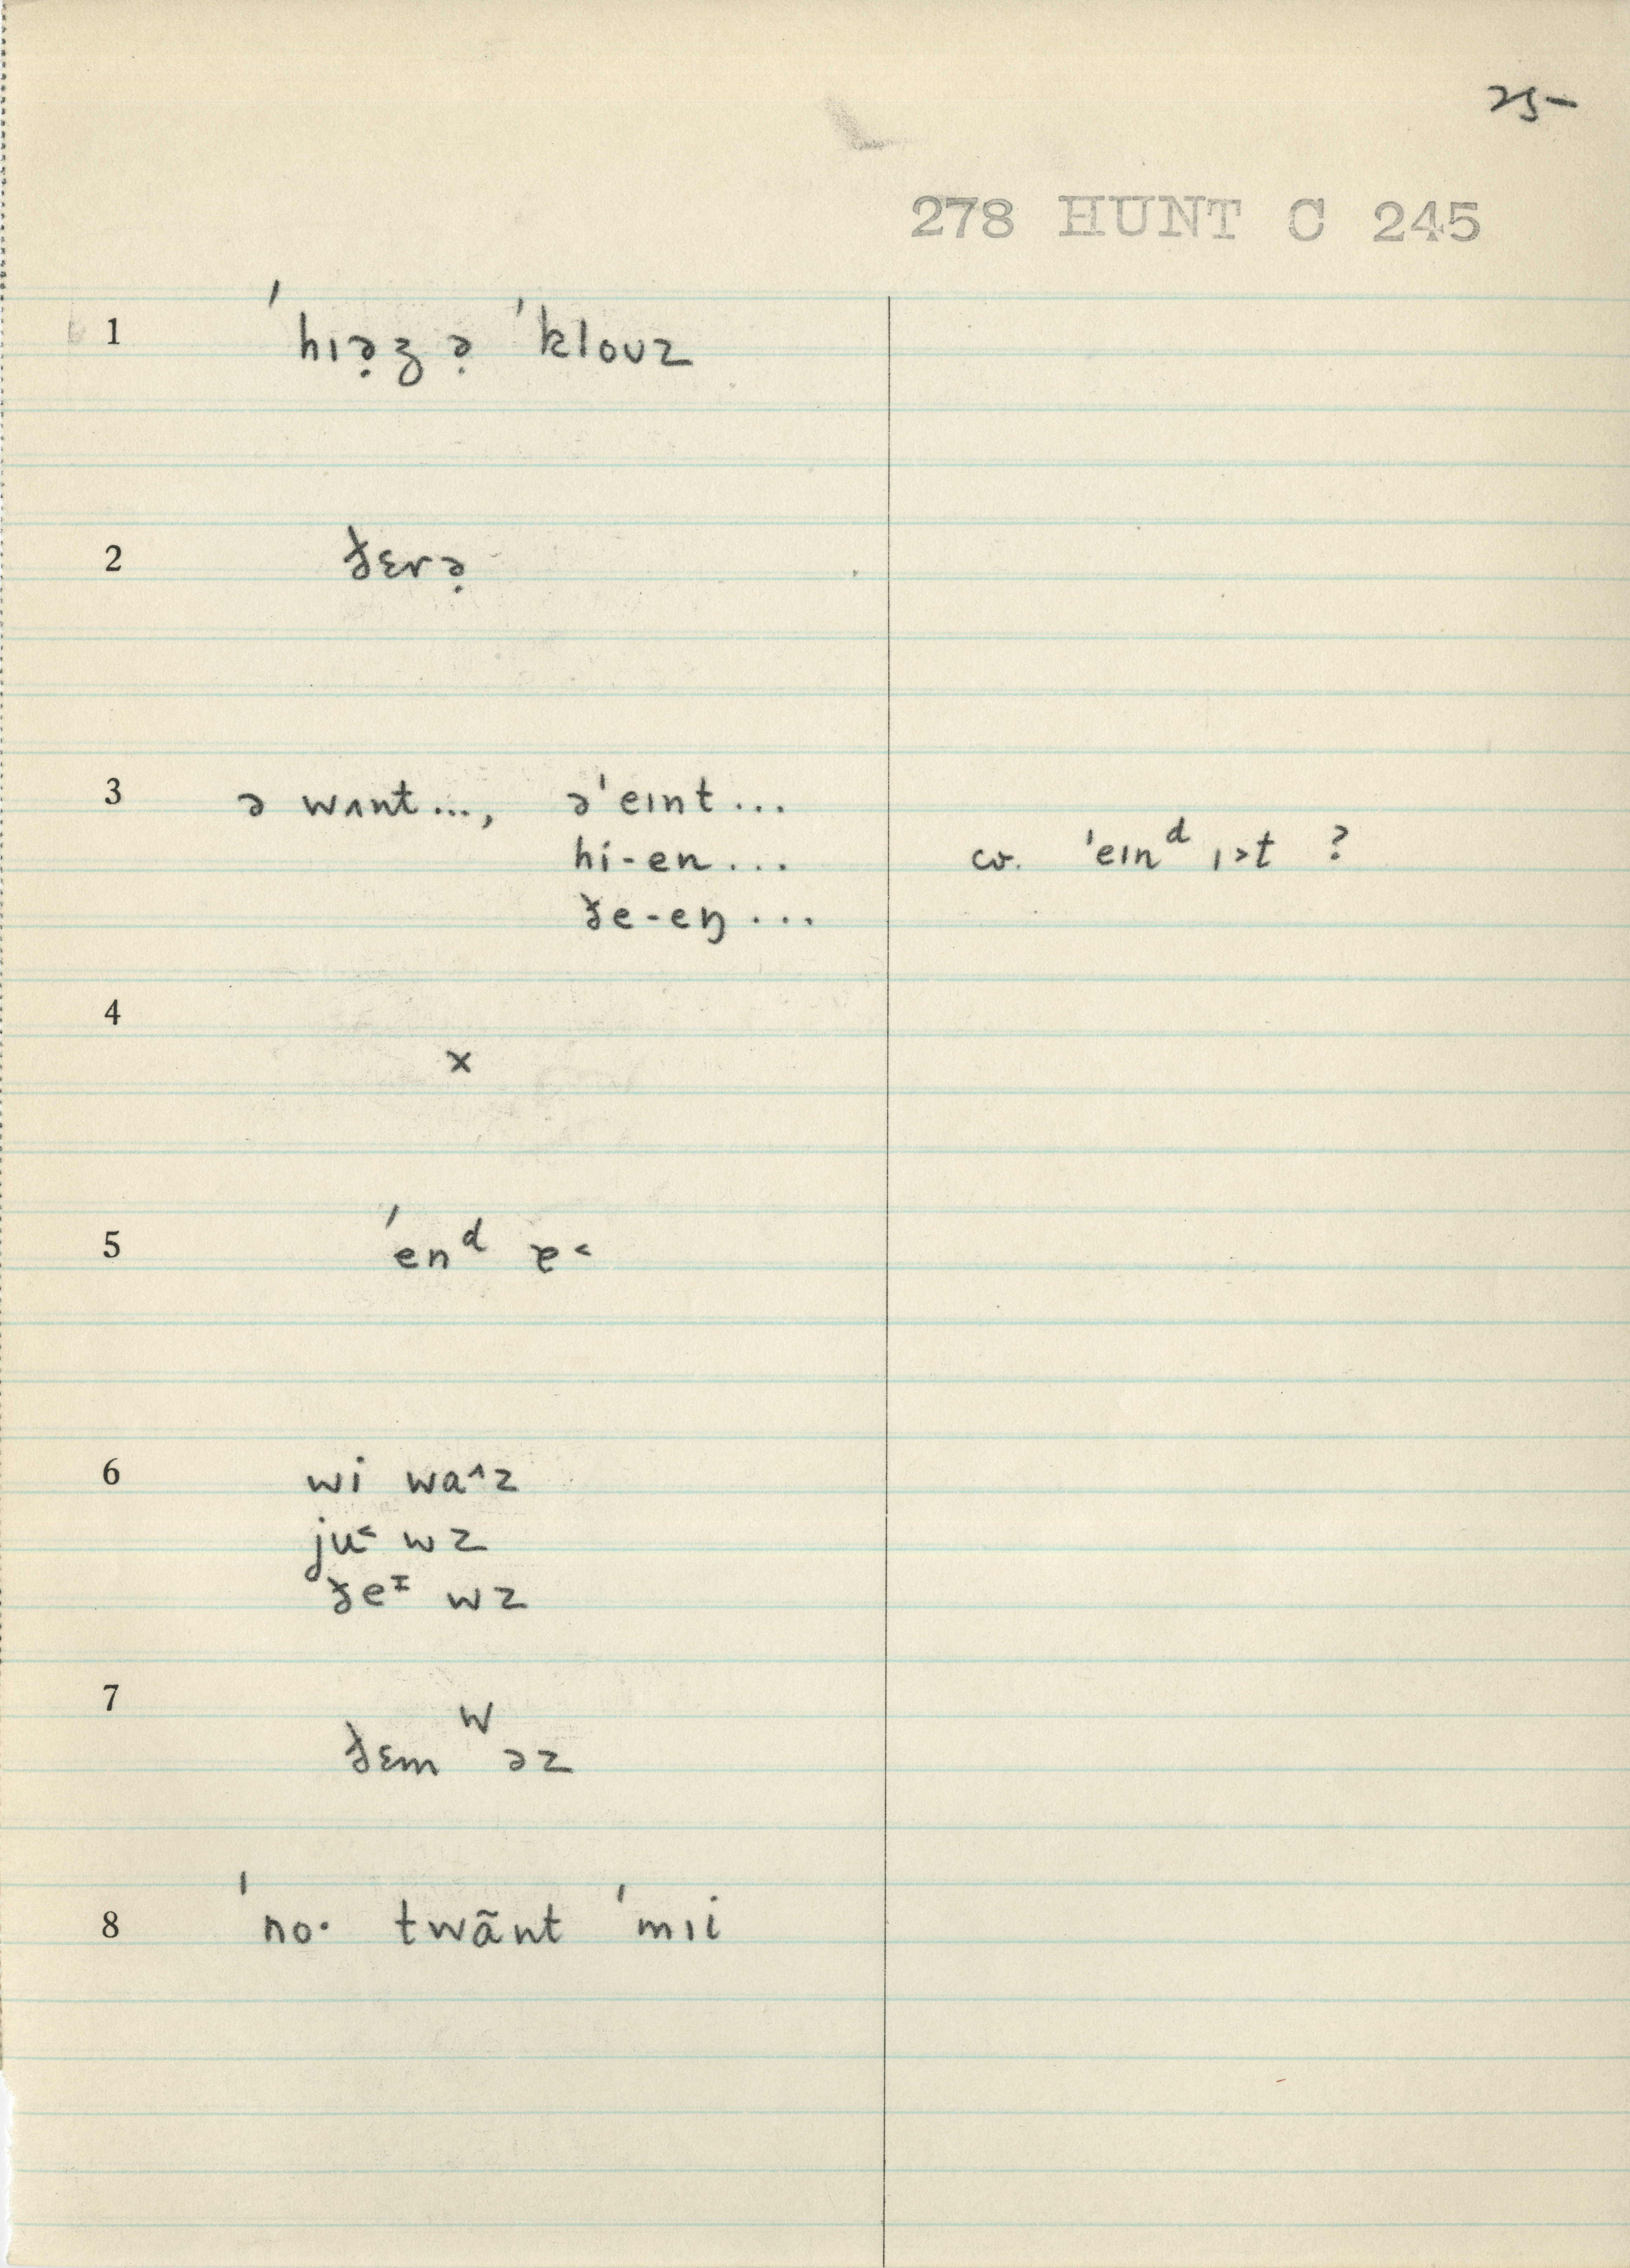 25
278 HUNT C 245
1 ˈhɪə̣ʒ ə̣ ˈklouz
2 ðɛrə̣
3 ə wʌnt..., əˈeɪnt...
hi-en... cv. ˈeɪnᵈ ɪ>t ?
ðe-eŋ...
4 x
5 ˈenᵈ ɐ<
6 wi wa^z
ju< wz
ðeᶦ wz
7 w
ðɛm əz
8 ˈno· twãnt ˈmɪi